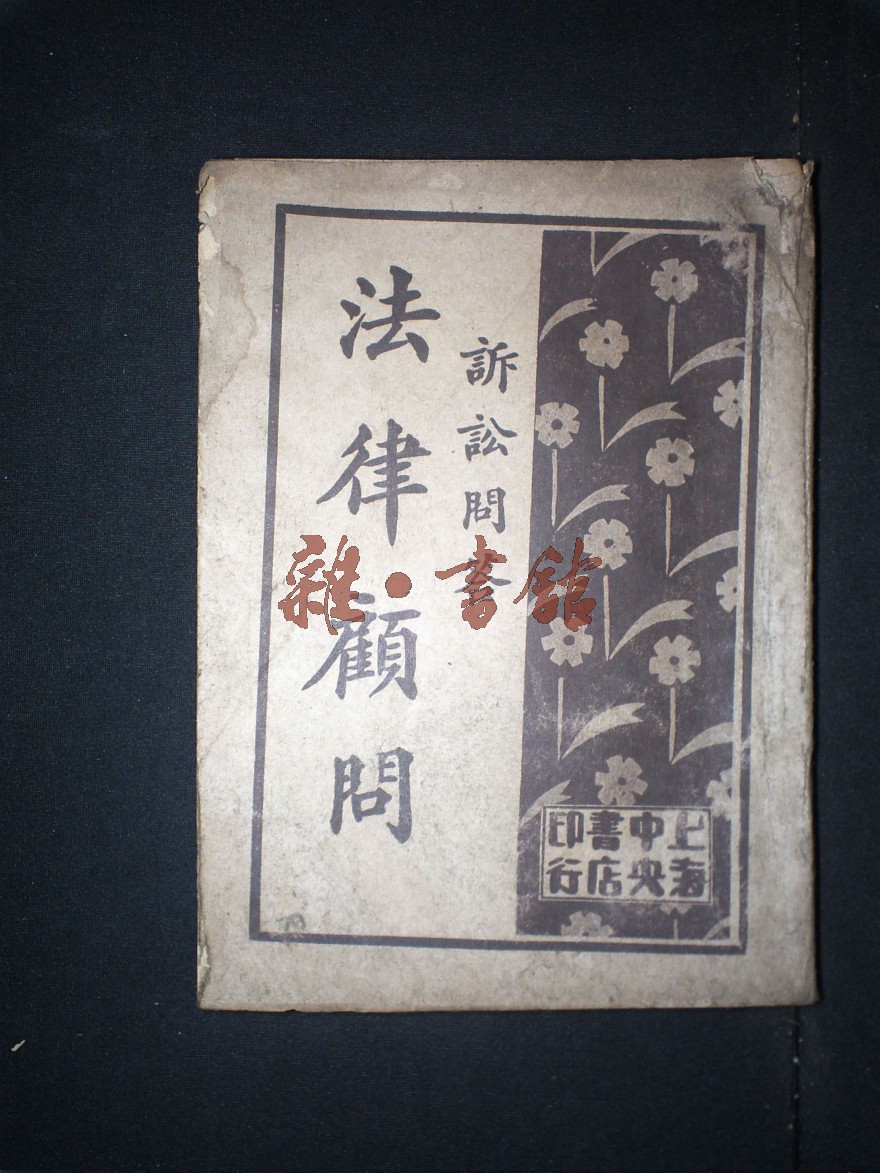 訴訟問答
法律顧問
上海
中央
書店
印行
雜·書館